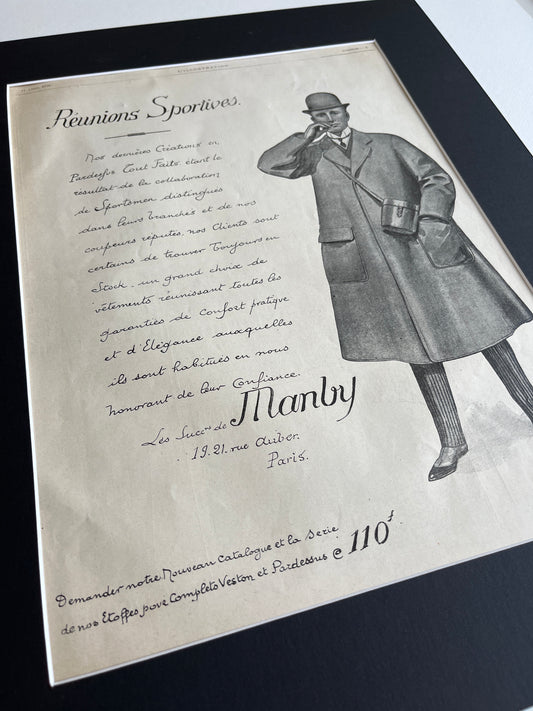 L'ILLUSTRATION
Réunions Sportives.
Nos dernières Créations en
Pardessus Tout Faits étant le
résultat de la collaboration
de Sportsmen distingués
dans leurs branches et de nos
coupeurs réputés, nos Clients sont
certains de trouver Toujours en
Stock, un grand choix de
vêtements réunissant toutes les
garanties de Confort pratique
et d'Elégance auxquelles
ils sont habitués en nous
honorant de leur Confiance.
Les Succrs de Manby
19.21. rue Auber.
Paris.
Demander notre Nouveau Catalogue et la Serie
de nos Etoffes pour Complets Veston et Pardessus @ 110f